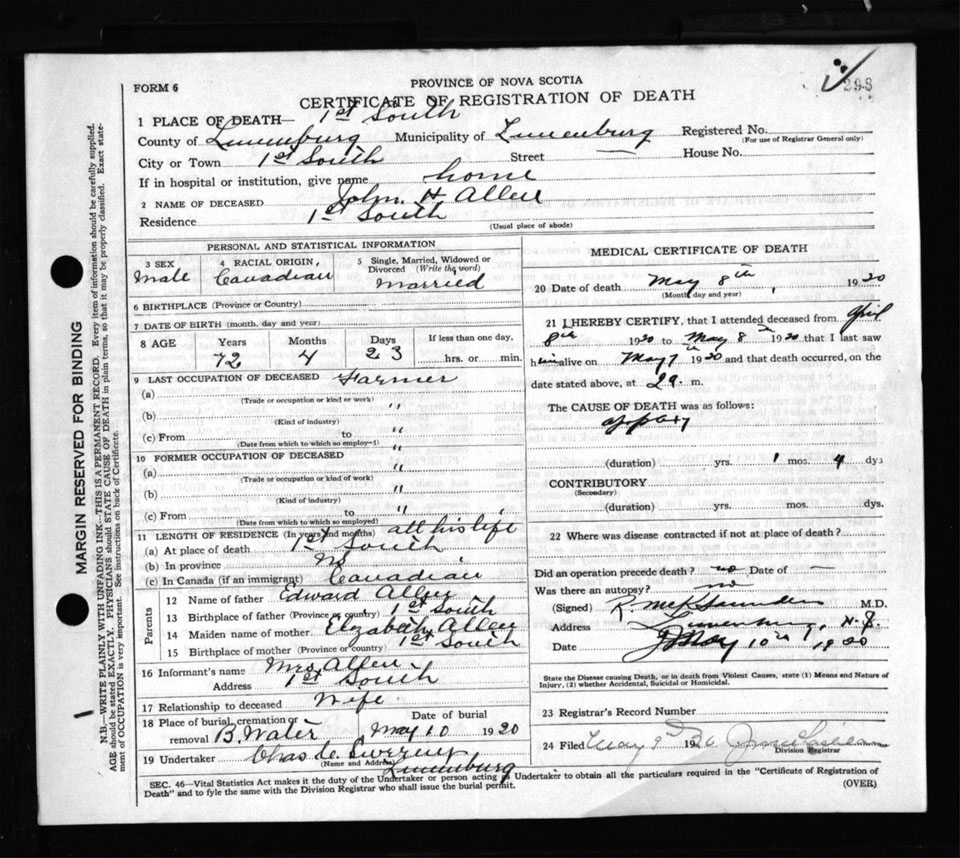 298
FORM 6
PROVINCE OF NOVA SCOTIA
CERTIFICATE OF REGISTRATION OF DEATH
1 PLACE OF DEATH— 1st South
County of Lunenburg Municipality of Lunenburg Registered No.
(For use of Registrar General only)
City or Town 1st South Street — House No.
If in hospital or institution, give name home
2 NAME OF DECEASED John H. Allen
Residence 1st South
(Usual place of abode)
PERSONAL AND STATISTICAL INFORMATION
3 SEX Male
4 RACIAL ORIGIN, Canadian
5 Single, Married, Widowed or Divorced (Write the word) Married
6 BIRTHPLACE (Province or Country)
7 DATE OF BIRTH (month, day and year)
8 AGE Years 72 Months 4 Days 23 If less than one day, hrs. or min.
9 LAST OCCUPATION OF DECEASED Farmer
(a)
(Trade or occupation or kind of work)
(b) "
(Kind of industry)
(c) From to "
(Date from which to which so employ—)
10 FORMER OCCUPATION OF DECEASED "
(a) "
(Trade or occupation or kind of work)
(b) "
(Kind of industry)
(c) From to "
(Date from which to which so employed)
11 LENGTH OF RESIDENCE (In years and months) all his life
(a) At place of death 1st South
(b) In province
(c) In Canada (if an immigrant) Canadian
Parents
12 Name of father Edward Allen
13 Birthplace of father (Province or country) 1st South
14 Maiden name of mother Elizabeth Allen
15 Birthplace of mother (Province or country) 1st South
16 Informant's name Mrs Allen
Address 1st South
17 Relationship to deceased Wife
18 Place of burial, cremation or removal B. Water Date of burial May 10 1920
19 Undertaker Chas
(Name and Address) Lunenburg
MEDICAL CERTIFICATE OF DEATH
20 Date of death May 8th, 1920
(Month, day and year)
21 I HEREBY CERTIFY, that I attended deceased from April
8th 1920 to May 8th 1920 that I last saw
him alive on May 7th 1920 and that death occurred, on the
date stated above, at 2 a. m.
The CAUSE OF DEATH was as follows:
(duration) yrs. 1 mos. 4 dys
CONTRIBUTORY
(Secondary)
(duration) yrs. mos. dys.
22 Where was disease contracted if not at place of death?
Did an operation precede death? no Date of —
Was there an autopsy? no
(Signed) R. McK Saunders M.D.
Address Lunenburg, N.S.
Date May 10th 1920
State the Disease causing Death, or in death from Violent Causes, state (1) Means and Nature of
Injury, (2) whether Accidental, Suicidal or Homicidal.
23 Registrar's Record Number
24 Filed May 9th 1920
Division Registrar
SEC. 46—Vital Statistics Act makes it the duty of the Undertaker or person acting as Undertaker to obtain all the particulars required in the "Certificate of Registration of
Death" and to fyle the same with the Division Registrar who shall issue the burial permit.
(OVER)
MARGIN RESERVED FOR BINDING
N.B.—WRITE PLAINLY WITH UNFADING INK—THIS IS A PERMANENT RECORD. Every item of information should be carefully supplied.
AGE should be stated EXACTLY. PHYSICIANS should STATE CAUSE OF DEATH in plain terms, so that it may be properly classified. Exact state-
ment of OCCUPATION is very important. See instructions on back of Certificate.